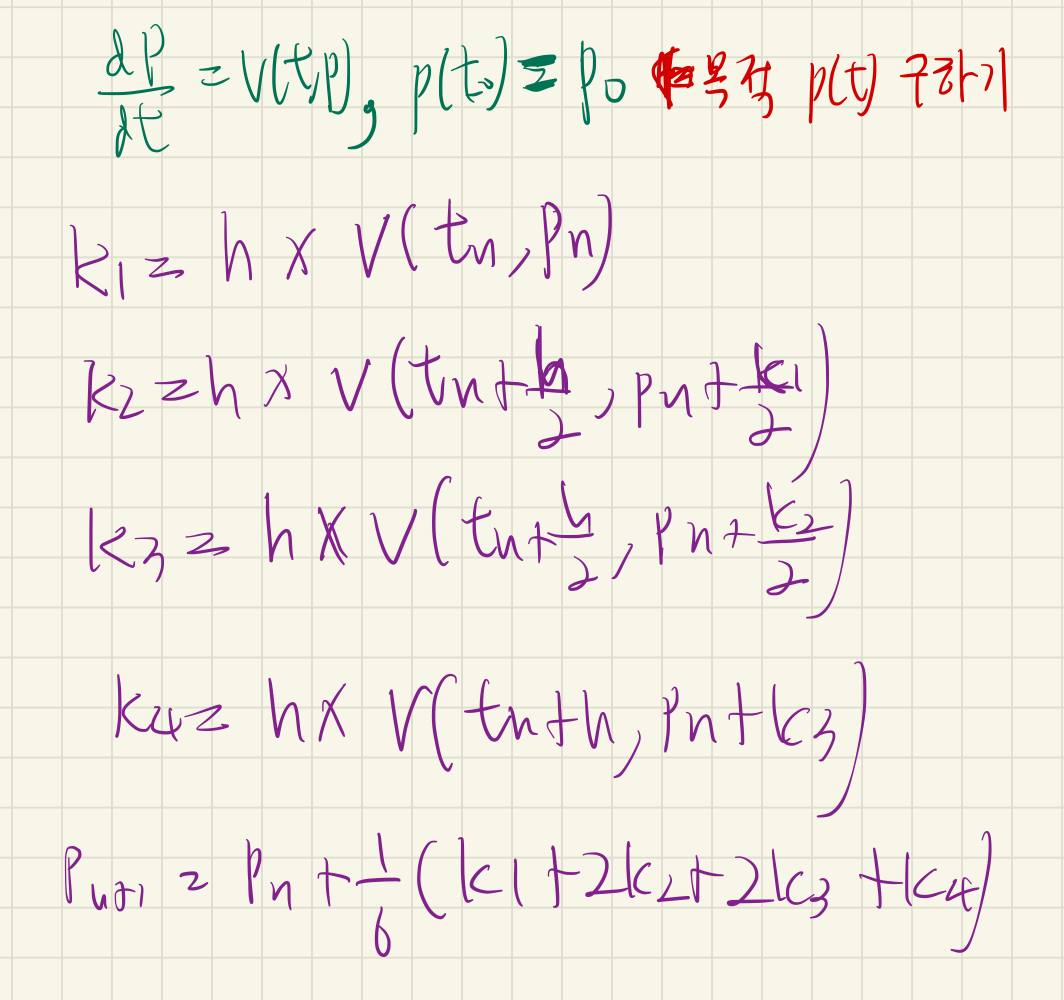 dP/dt = V(t,P), p(t₀) = P₀ 목적 p(t) 구하기
k₁ = h × V(tn, Pn)
k₂ = h × V(tn + h/2, Pn + k₁/2)
k₃ = h × V(tn + h/2, Pn + k₂/2)
k₄ = h × V(tn + h, Pn + k₃)
Pn+1 = Pn + 1/6 (k₁ + 2k₂ + 2k₃ + k₄)